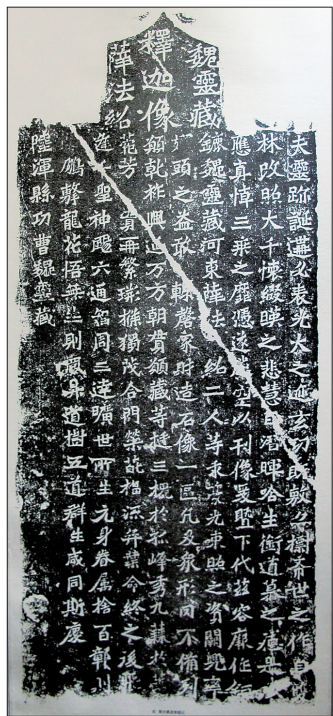 魏靈藏
釋迦像
薛法紹
夫靈跡誕遘必表光大之迹玄功既敷亦標希世之作自
林改照大千懷綴暎之悲慧日潛暉哈生銜道慕之痛是
應真悼三乘之靡憑遂騰空以刊像爰暨下代茲容廝作鉅
鏕魏靈藏河東薛法紹二人等求豪光東照之資闕兜率
頭之益敢輒罄家財造石像一區凡及衆形罔不備列
願乾祚興延万方朝貫願藏等挺三槐於孤峰秀九蕀於華
苑芳實再繁荊條獨茂合門榮葩福流弈葉命終之後飛
逢千聖神颺六通智周三達曠世所生元身眷屬捨百鄣則
鵬擊龍花悟無生則鳳昇道樹五道群生咸同斯慶
陸渾縣功曹魏靈藏